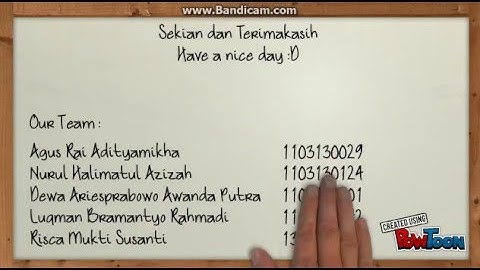 www.Bandicam.com
Sekian dan Terimakasih
Have a nice day :D
Our Team :
Agus Rai Adityamikha 1103130029
Nurul Halimatul Azizah 1103130124
Dewa Ariesprabowo Awanda Putra
Luqman Bramantyo Rahmadi
Risca Mukti Susanti
CREATED USING
POWTOON